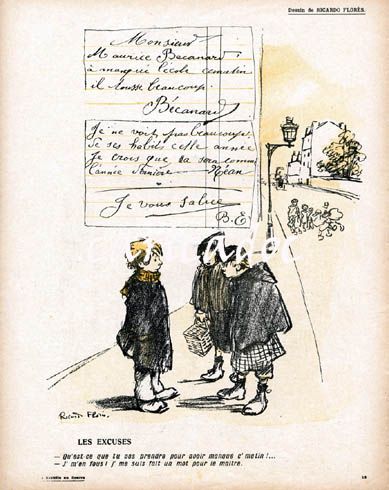 Dessin de RICARDO FLORÈS.
Monsieur
Maurice Bécanard
à manqué l'école cematin
il tousse beaucoup.
Bécanard
Je ne voit pas beaucoup
de ses habits cette année
Je crois que sa sera comme
l'année dernière
Je vous salue
B.E
Ricardo Florès
LES EXCUSES
— Qu'est-ce que tu vas prendre pour avoir manqué c'matin!...
— J' m'en fous! j' me suis fait un mot pour le maître.